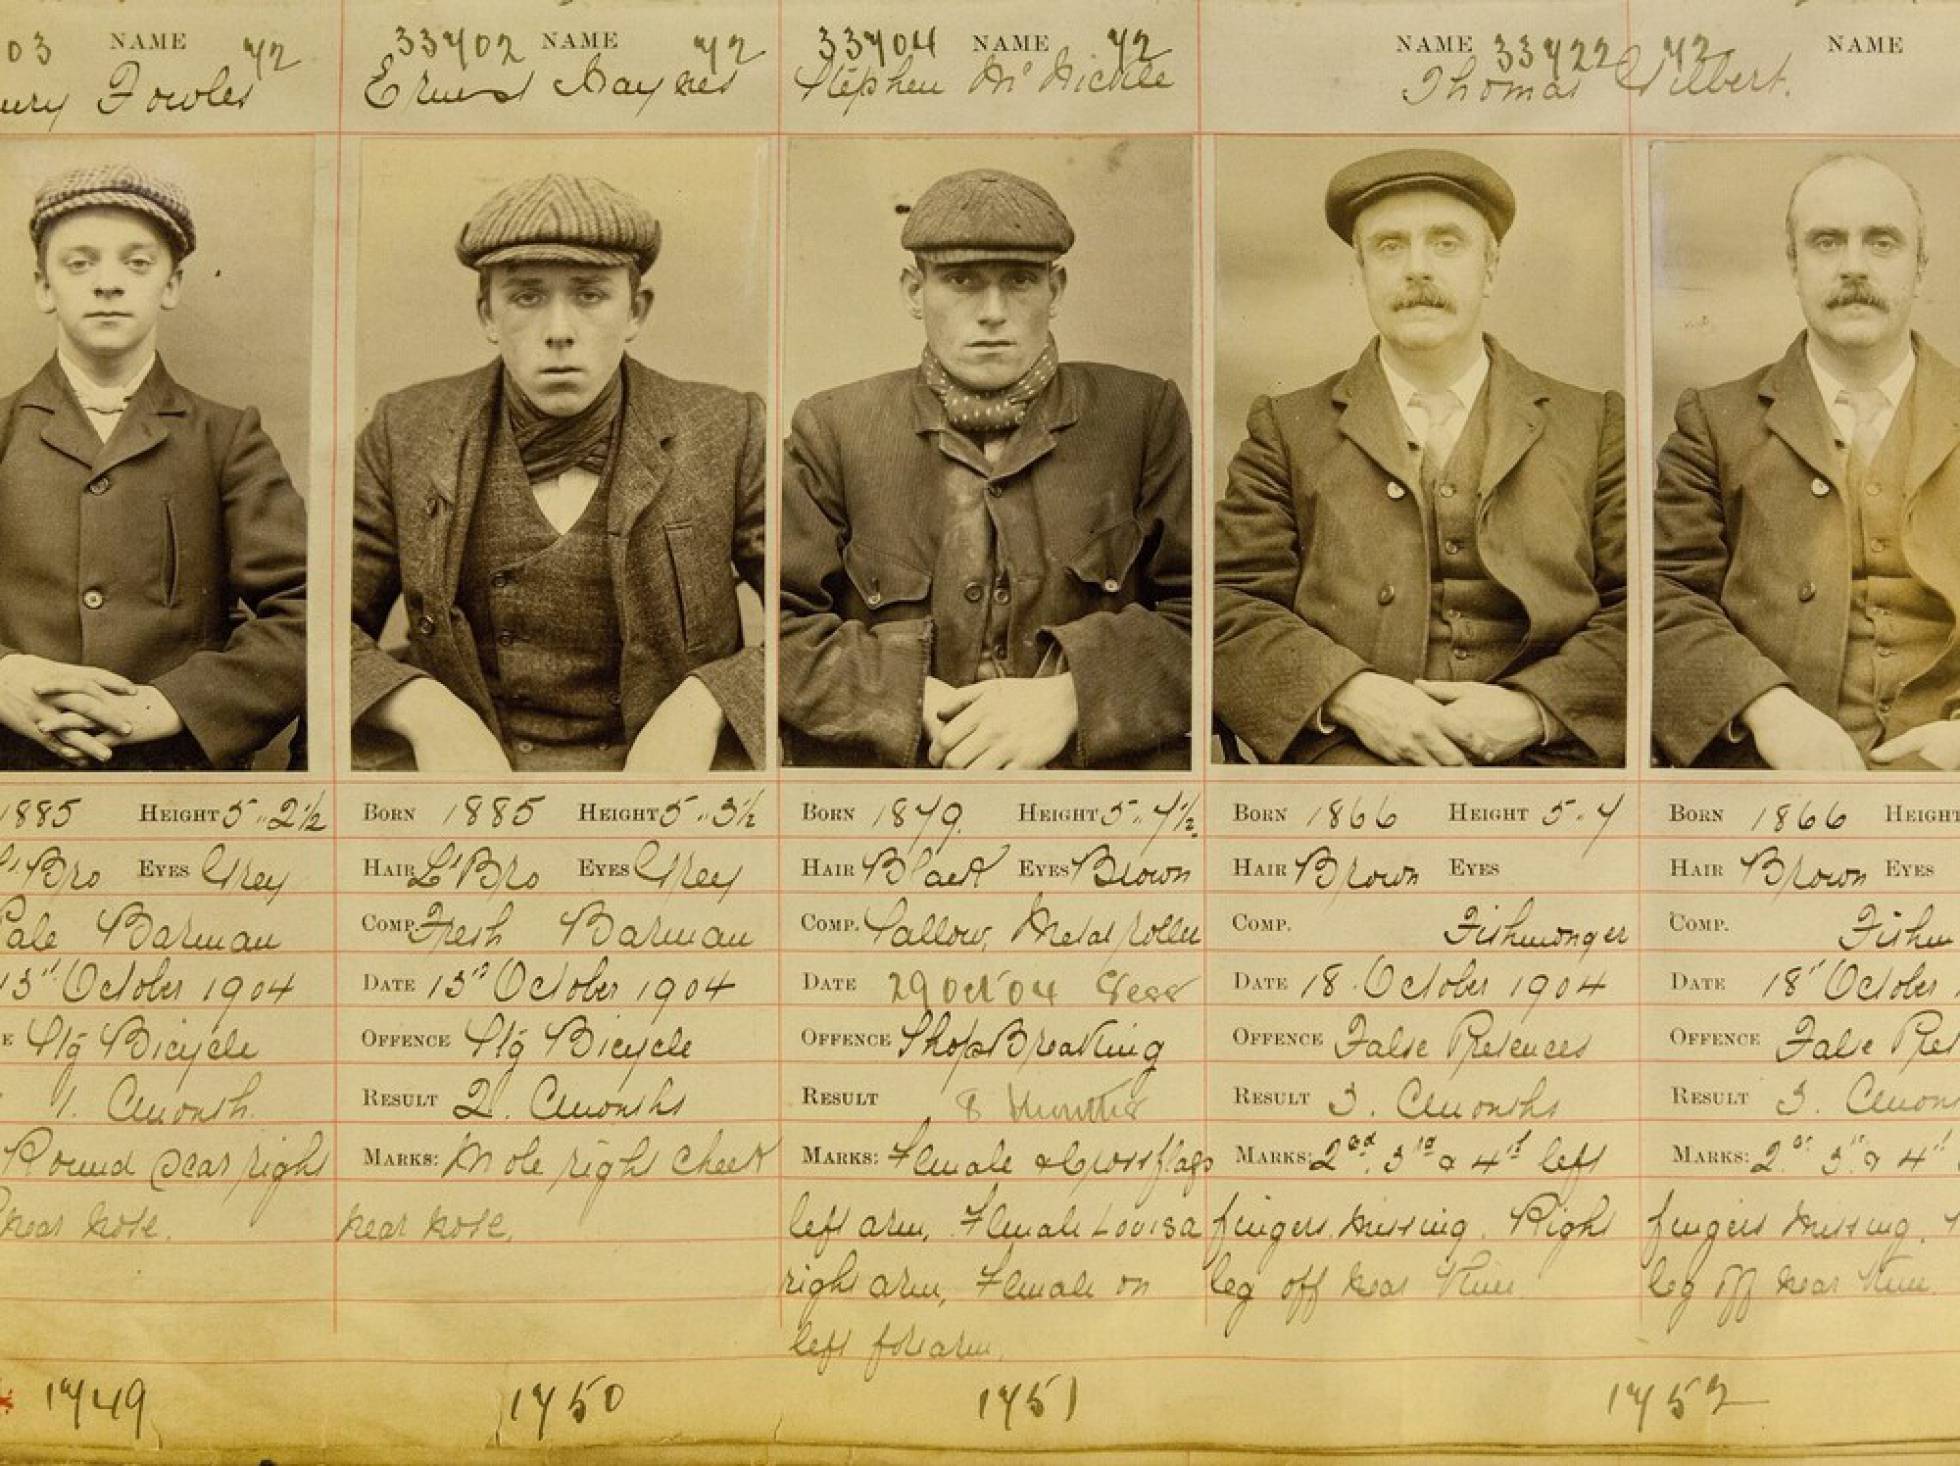 03 NAME 72
Fowles
NAME 33702 72
Ernest Haynes
NAME 33704 72
Stephen McNickle
NAME 33722 72
Thomas Gilbert.
NAME
1885 HEIGHT 5"2½
Lt Bro EYES Grey
Pale Barman
13th October 1904
E Stg Bicycle
1. Cmonth.
Round scar right
near nose.
1749
BORN 1885 HEIGHT 5"3½
HAIR Lt Bro EYES Grey
COMP. Fresh Barman
DATE 13th October 1904
OFFENCE Stg Bicycle
RESULT 2. Cmonths
MARKS: Mole right cheek
near nose.
1750
BORN 1879. HEIGHT 5"4½
HAIR Black EYES Brown
COMP. Sallow, Metal roller
DATE 29 Oct 04 Sess
OFFENCE ShopBreaking
RESULT 8 Months
MARKS: Female & Cross flags
left arm, Female Louisa
right arm, Female on
left forearm.
1751
BORN 1866 HEIGHT 5-7
HAIR Brown EYES
COMP. Fishmonger
DATE 18 October 1904
OFFENCE False Pretences
RESULT 3. Cmonths
MARKS: 2nd, 3rd & 4th left
fingers missing. Right
leg off near knee
1752
BORN 1866 HEIGHT
HAIR Brown EYES
COMP. Fishm
DATE 18th October
OFFENCE False Pret
RESULT 3. Cmon
MARKS: 2nd 3rd & 4th
fingers missing.
leg off near knee.